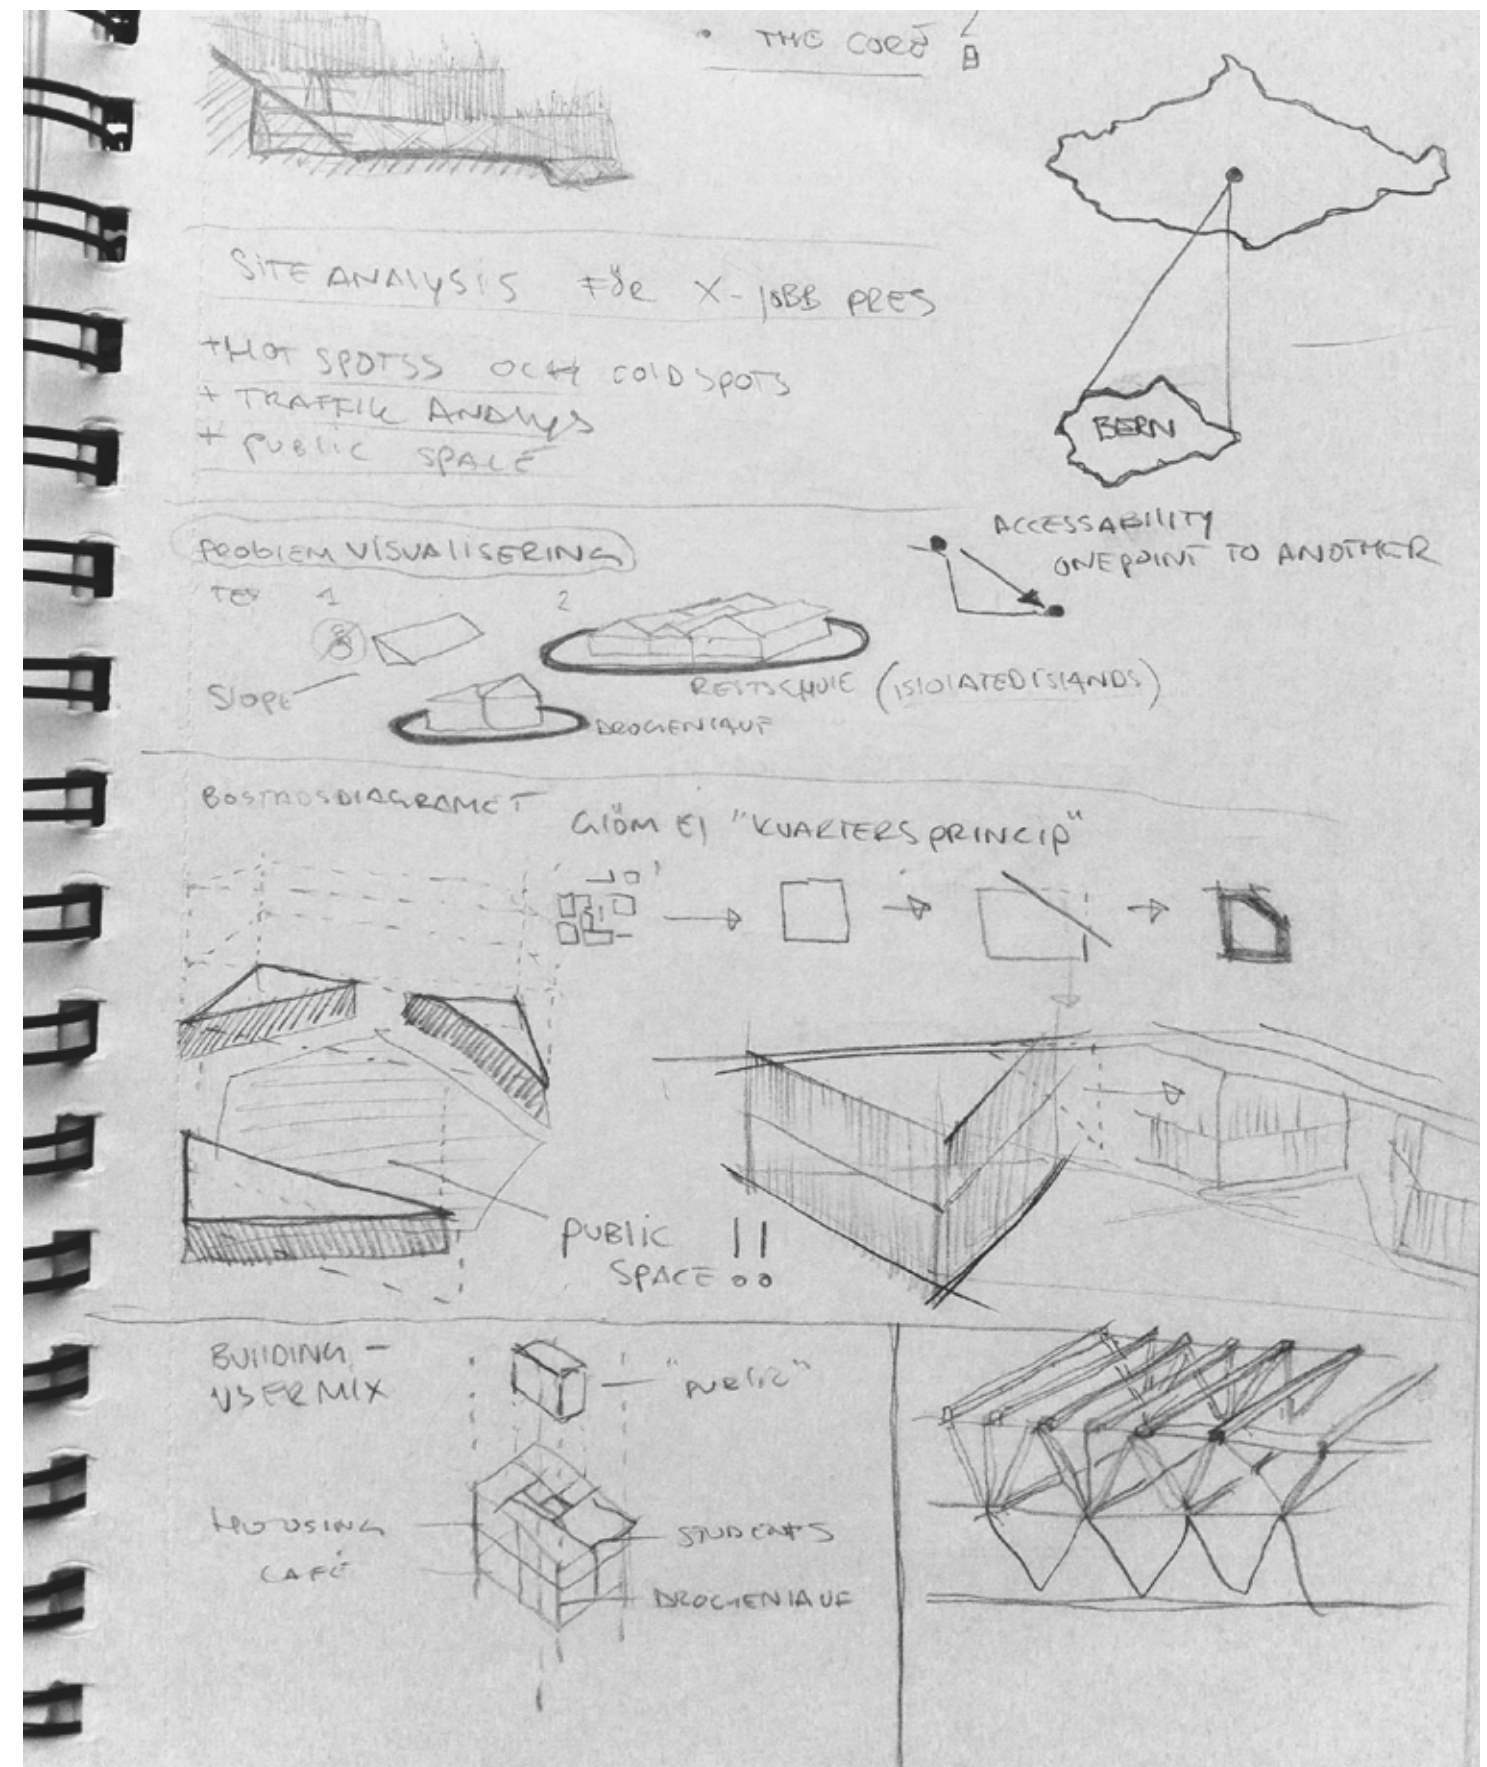 • THE CORE
SITE ANALYSIS FÖR X-JOBB PRES
+HOT SPOTSS OCH COLDSPOTS
+ TRAFFIK ANALYS
+ PUBLIC SPACE
BERN
ACCESSABILITY
ONE POINT TO ANOTHER
PROBLEM VISUALISERING
1 2
SLOPE
(ISLOLATED ISLANDS)
BOSTADSDIAGRAMET
GLÖM EJ "KVARTERSPRINCIP"
PUBLIC
SPACE !!
BUILDING -
USER MIX
"PUBLIC"
HOUSING
CAFÉ
STUDENTS
DROGENLAUF